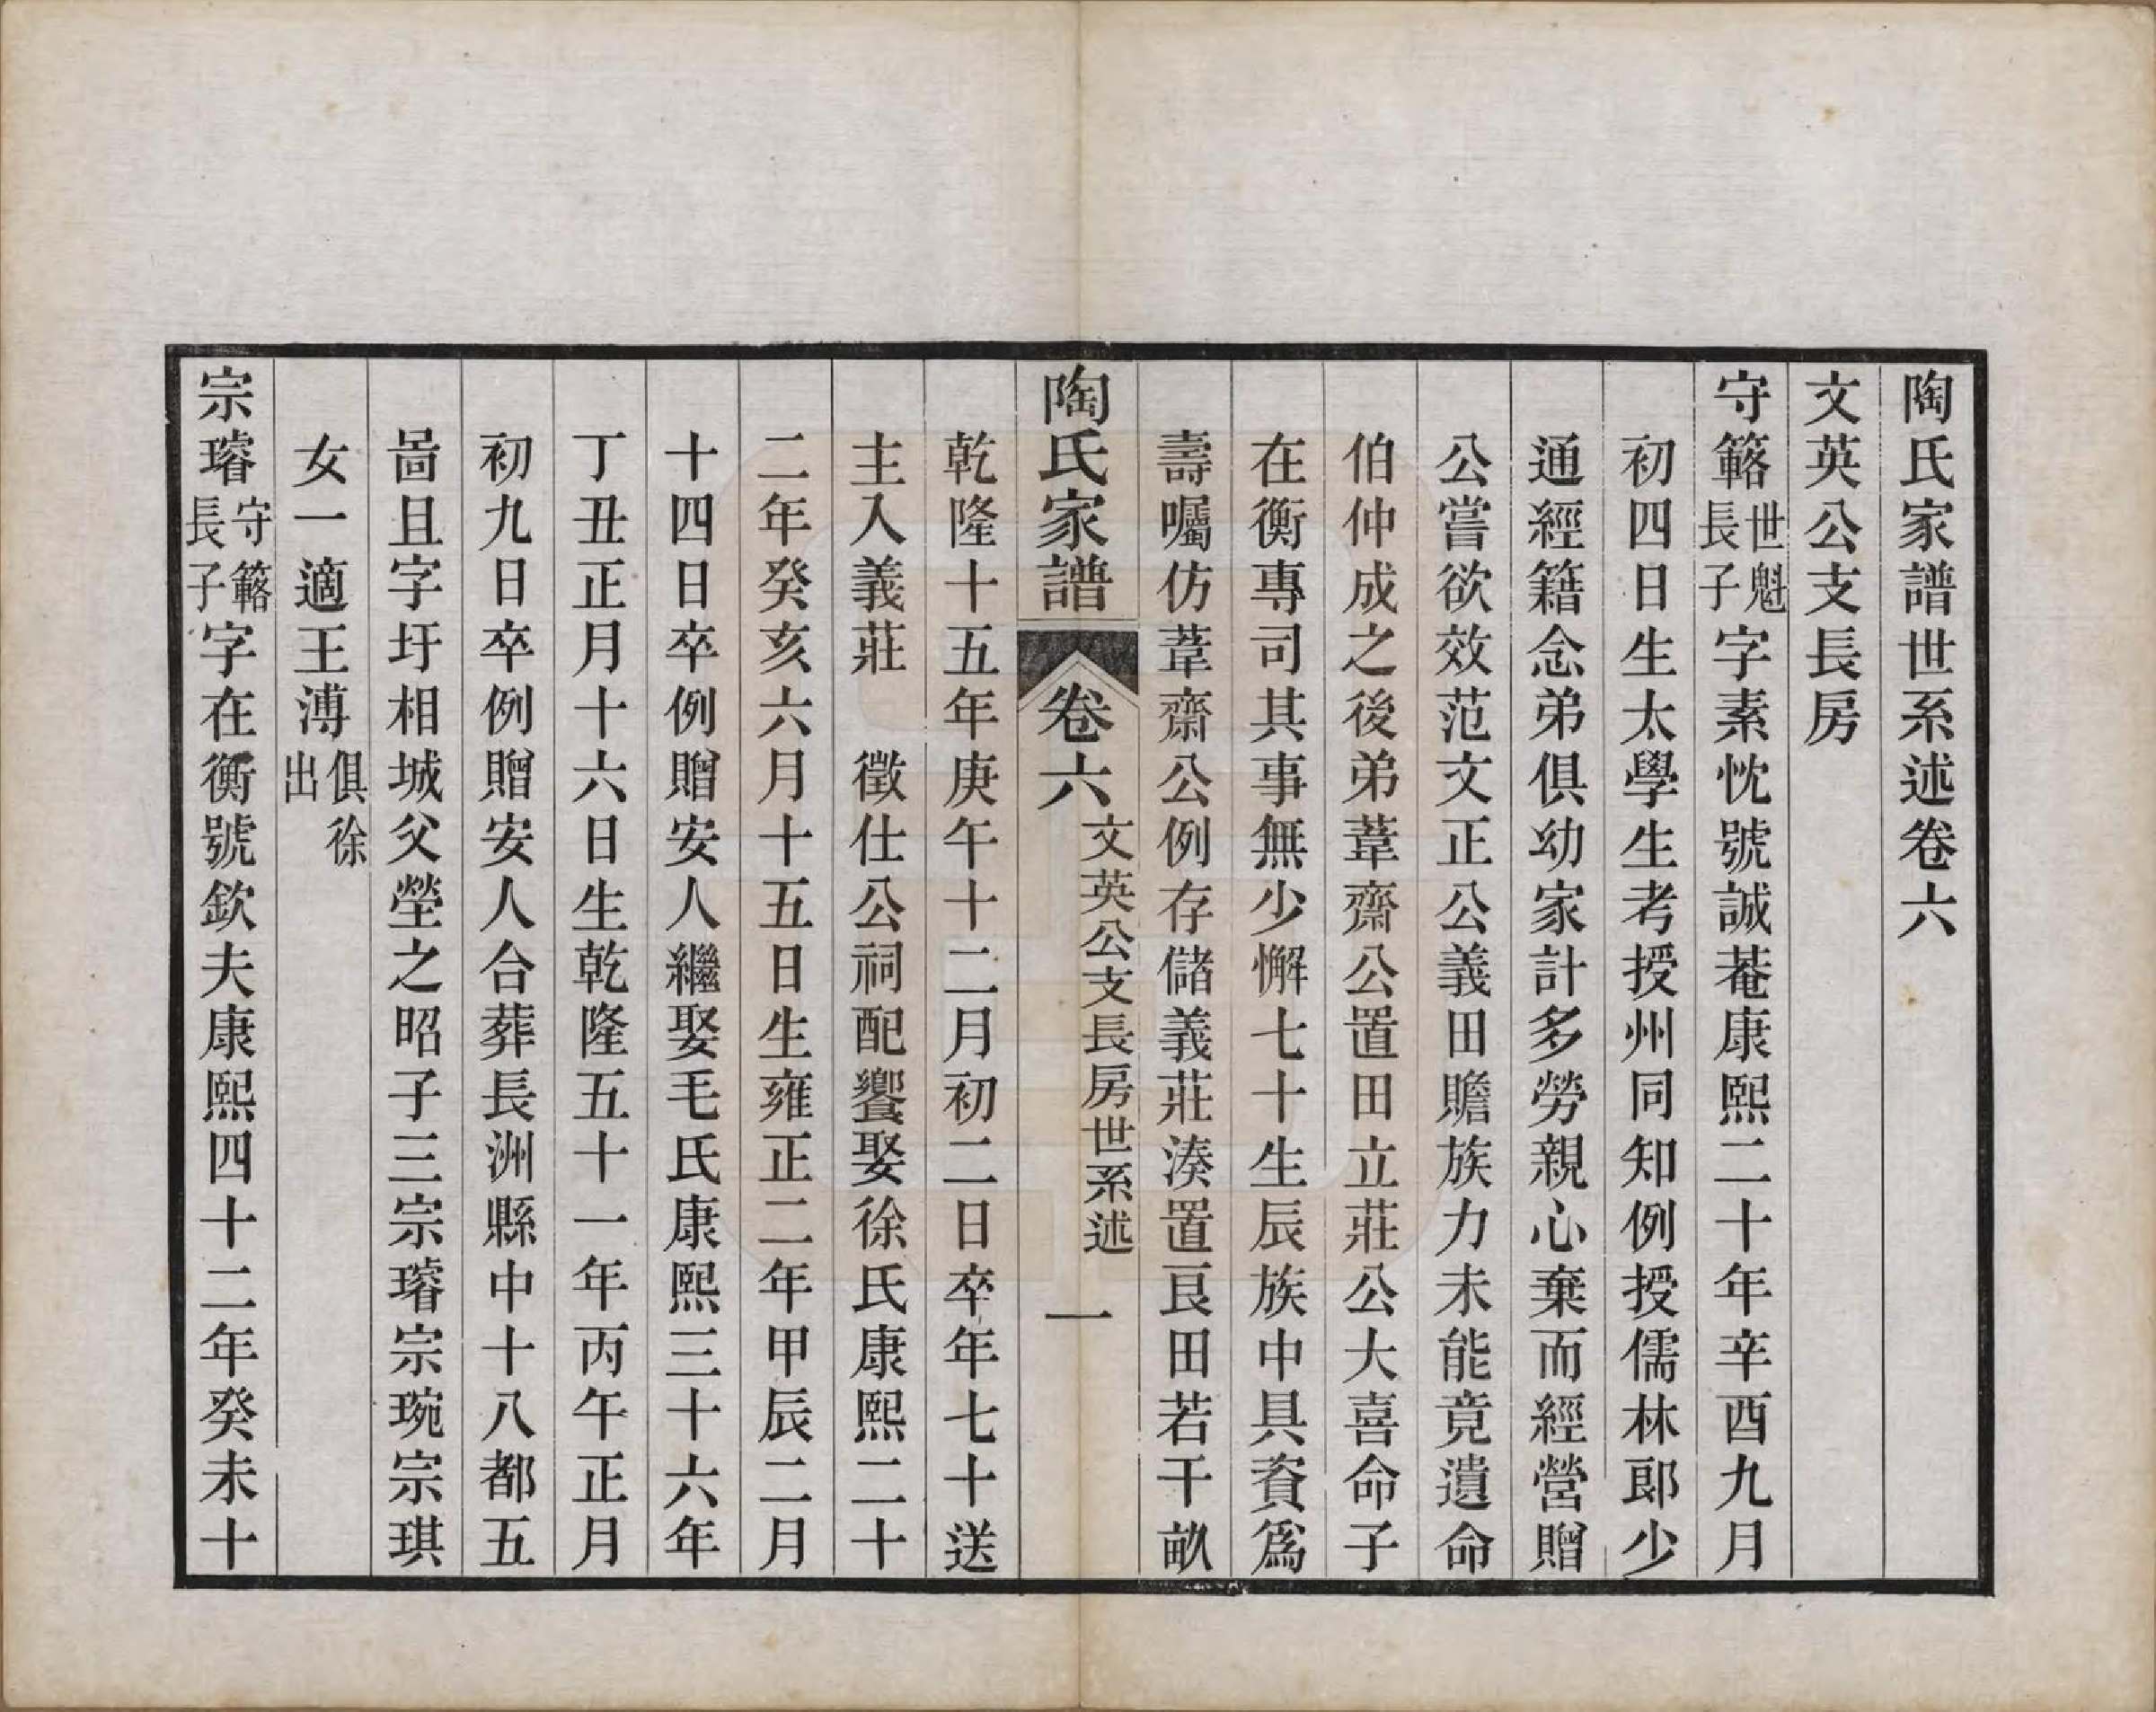 陶氏家譜世系述卷六
文英公支長房
守簵世魁長子字素忱號誠菴康熙二十年辛酉九月
初四日生太學生考授州同知例授儒林郎少
通經籍念弟俱幼家計多勞親心棄而經營贈
公嘗欲效范文正公義田贍族力未能竟遺命
伯仲成之後弟葦齋公置田立莊公大喜命子
在衡專司其事無少懈七十生辰族中具資爲
壽囑仿葦齋公例存儲義莊湊置良田若干畝
陶氏家譜 卷六 文英公支長房世系述 一
乾隆十五年庚午十二月初二日卒年七十送
主入義莊 徵仕公祠配饗娶徐氏康熙二十
二年癸亥六月十五日生雍正二年甲辰二月
十四日卒例贈安人繼娶毛氏康熙三十六年
丁丑正月十六日生乾隆五十一年丙午正月
初九日卒例贈安人合葬長洲縣中十八都五
啚且字圩相城父塋之昭子三宗璿宗琬宗琪
女一適王溥俱徐出
宗璿守簵長子字在衡號欽夫康熙四十二年癸未十